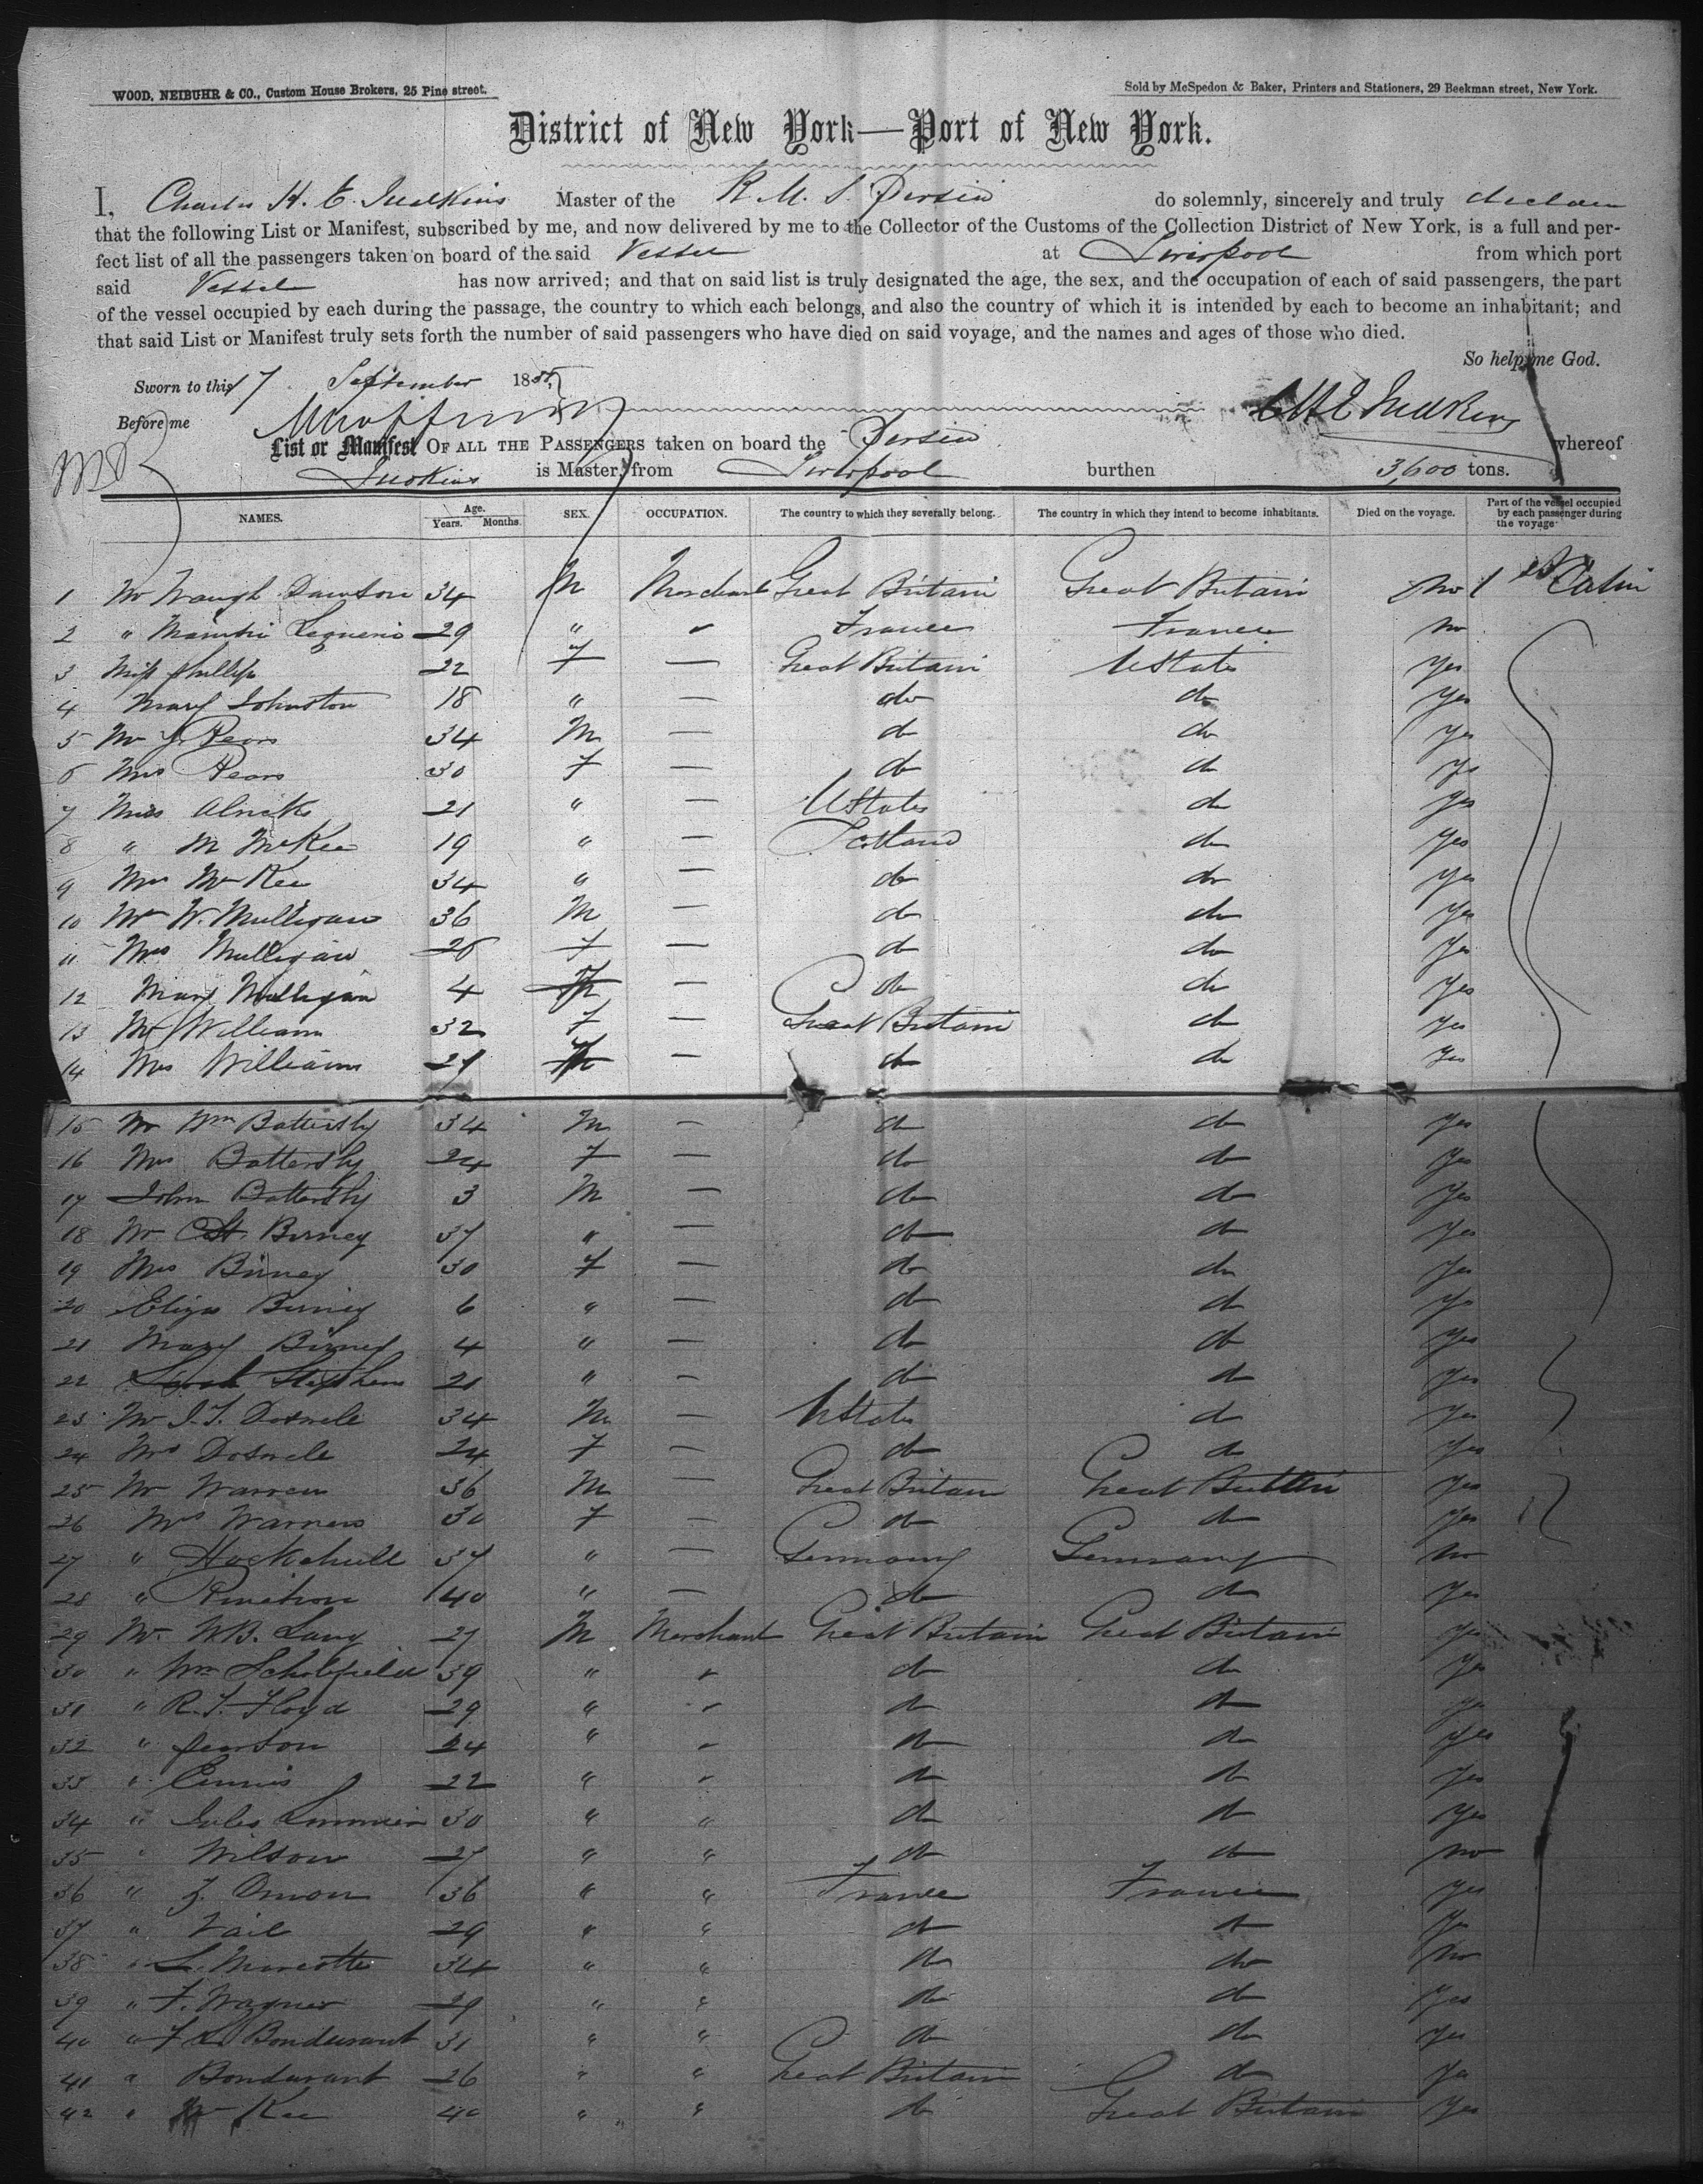 WOOD, NEIBUHR & CO., Custom House Brokers, 25 Pine street.
Sold by McSpedon & Baker, Printers and Stationers, 29 Beekman street, New York.
District of New York—Port of New York.
I, Charles H. E. Judkins Master of the R. M. S. Persia do solemnly, sincerely and truly declare
that the following List or Manifest, subscribed by me, and now delivered by me to the Collector of the Customs of the Collection District of New York, is a full and per-
fect list of all the passengers taken on board of the said Vessel at Liverpool from which port
said Vessel has now arrived; and that on said list is truly designated the age, the sex, and the occupation of each of said passengers, the part
of the vessel occupied by each during the passage, the country to which each belongs, and also the country of which it is intended by each to become an inhabitant; and
that said List or Manifest truly sets forth the number of said passengers who have died on said voyage, and the names and ages of those who died.
So help me God.
Sworn to this 17 September 185
Before me C H E Judkins
List or Manifest OF ALL THE PASSENGERS taken on board the Persia whereof
Judkins is Master, from Liverpool burthen 3,600 tons.
NAMES. Age. Years. Months. SEX. OCCUPATION. The country to which they severally belong. The country in which they intend to become inhabitants. Died on the voyage. Part of the vessel occupied by each passenger during the voyage
1 Mr Waugh Dawson 34 M Merchant Great Britain Great Britain no 1st Cabin
2 " 29 " France France no
3 Miss Phillips 22 F — Great Britain UStates yes
4 Mary Johnston 18 " — do do yes
5 Mr J. Pears 34 M — do do yes
6 Mrs Pears 30 F — do do yes
7 Miss Alricks 21 " — UStates do yes
8 " M McKee 19 " — Scotland do yes
9 Mrs McKee 34 " — do do yes
10 Mr W. Mulligan 36 M — do do yes
11 Mrs Mulligan F — do do yes
12 Mary Mulligan 4 — do do yes
13 Mr William 32 F — Great Britain do yes
14 Mrs Williams — do do yes
15 Mr Wm Battersby 34 M — do do yes
16 Mrs Battersby 24 F — do do yes
17 John Battersby 3 M — do do yes
18 Mr Birney 37 " — do do yes
19 Mrs Birney 30 F — do do yes
20 Eliza Birney 6 " — do do yes
21 Mary Birney 4 " — do do yes
22 Sarah Stephens 21 " — do do yes
23 Mr 34 M — UStates do yes
24 Mrs 24 F — do do yes
25 Mr Warren 36 M — Great Britain Great Britain yes
26 Mrs Warners 30 F — do do yes
27 " 37 " — Germany Germany no
28 " 40 " — do do yes
29 Mr. W.B. Lang 27 M Merchant Great Britain Great Britain yes
30 " Wm Scholefield 39 " " do do yes
31 " R. T. Floyd 29 " " do do yes
32 " 24 " " do do yes
33 " Ennis 22 " " do do yes
34 " Jules 30 " " do do yes
35 " Wilson 27 " " do do no
36 " 36 " " France France yes
37 " Vail 29 " " do do yes
38 " L. Marcotte 34 " " do do no
39 " F. Wagner 29 " " do do yes
40 " F L Bondurant 31 " " do do yes
41 " Bondurant 26 " " Great Britain do yes
42 " McKee 40 " " do Great Britain yes